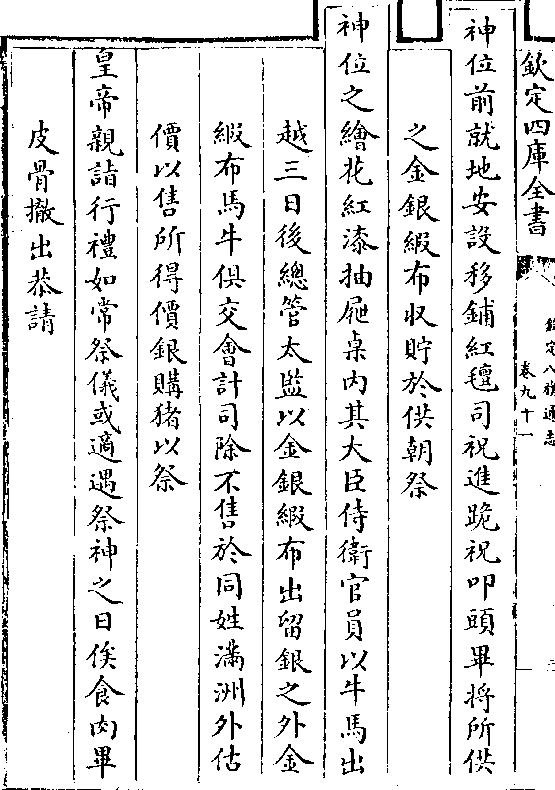 欽定四庫全書
欽定八旗通志
卷九十一
神位前就地安設移鋪紅氊司祝進跪祝叩頭畢將所供
之金銀緞布收貯於供朝祭
神位之繪花紅漆抽屜桌内其大臣侍衛官員以牛馬出
越三日後總管太監以金銀緞布出留銀之外金
緞布馬牛俱交會計司除不售於同姓滿洲外估
價以售所得價銀購猪以祭
皇帝親詣行禮如常祭儀或適遇祭神之日俟食肉畢
皮骨撤出恭請